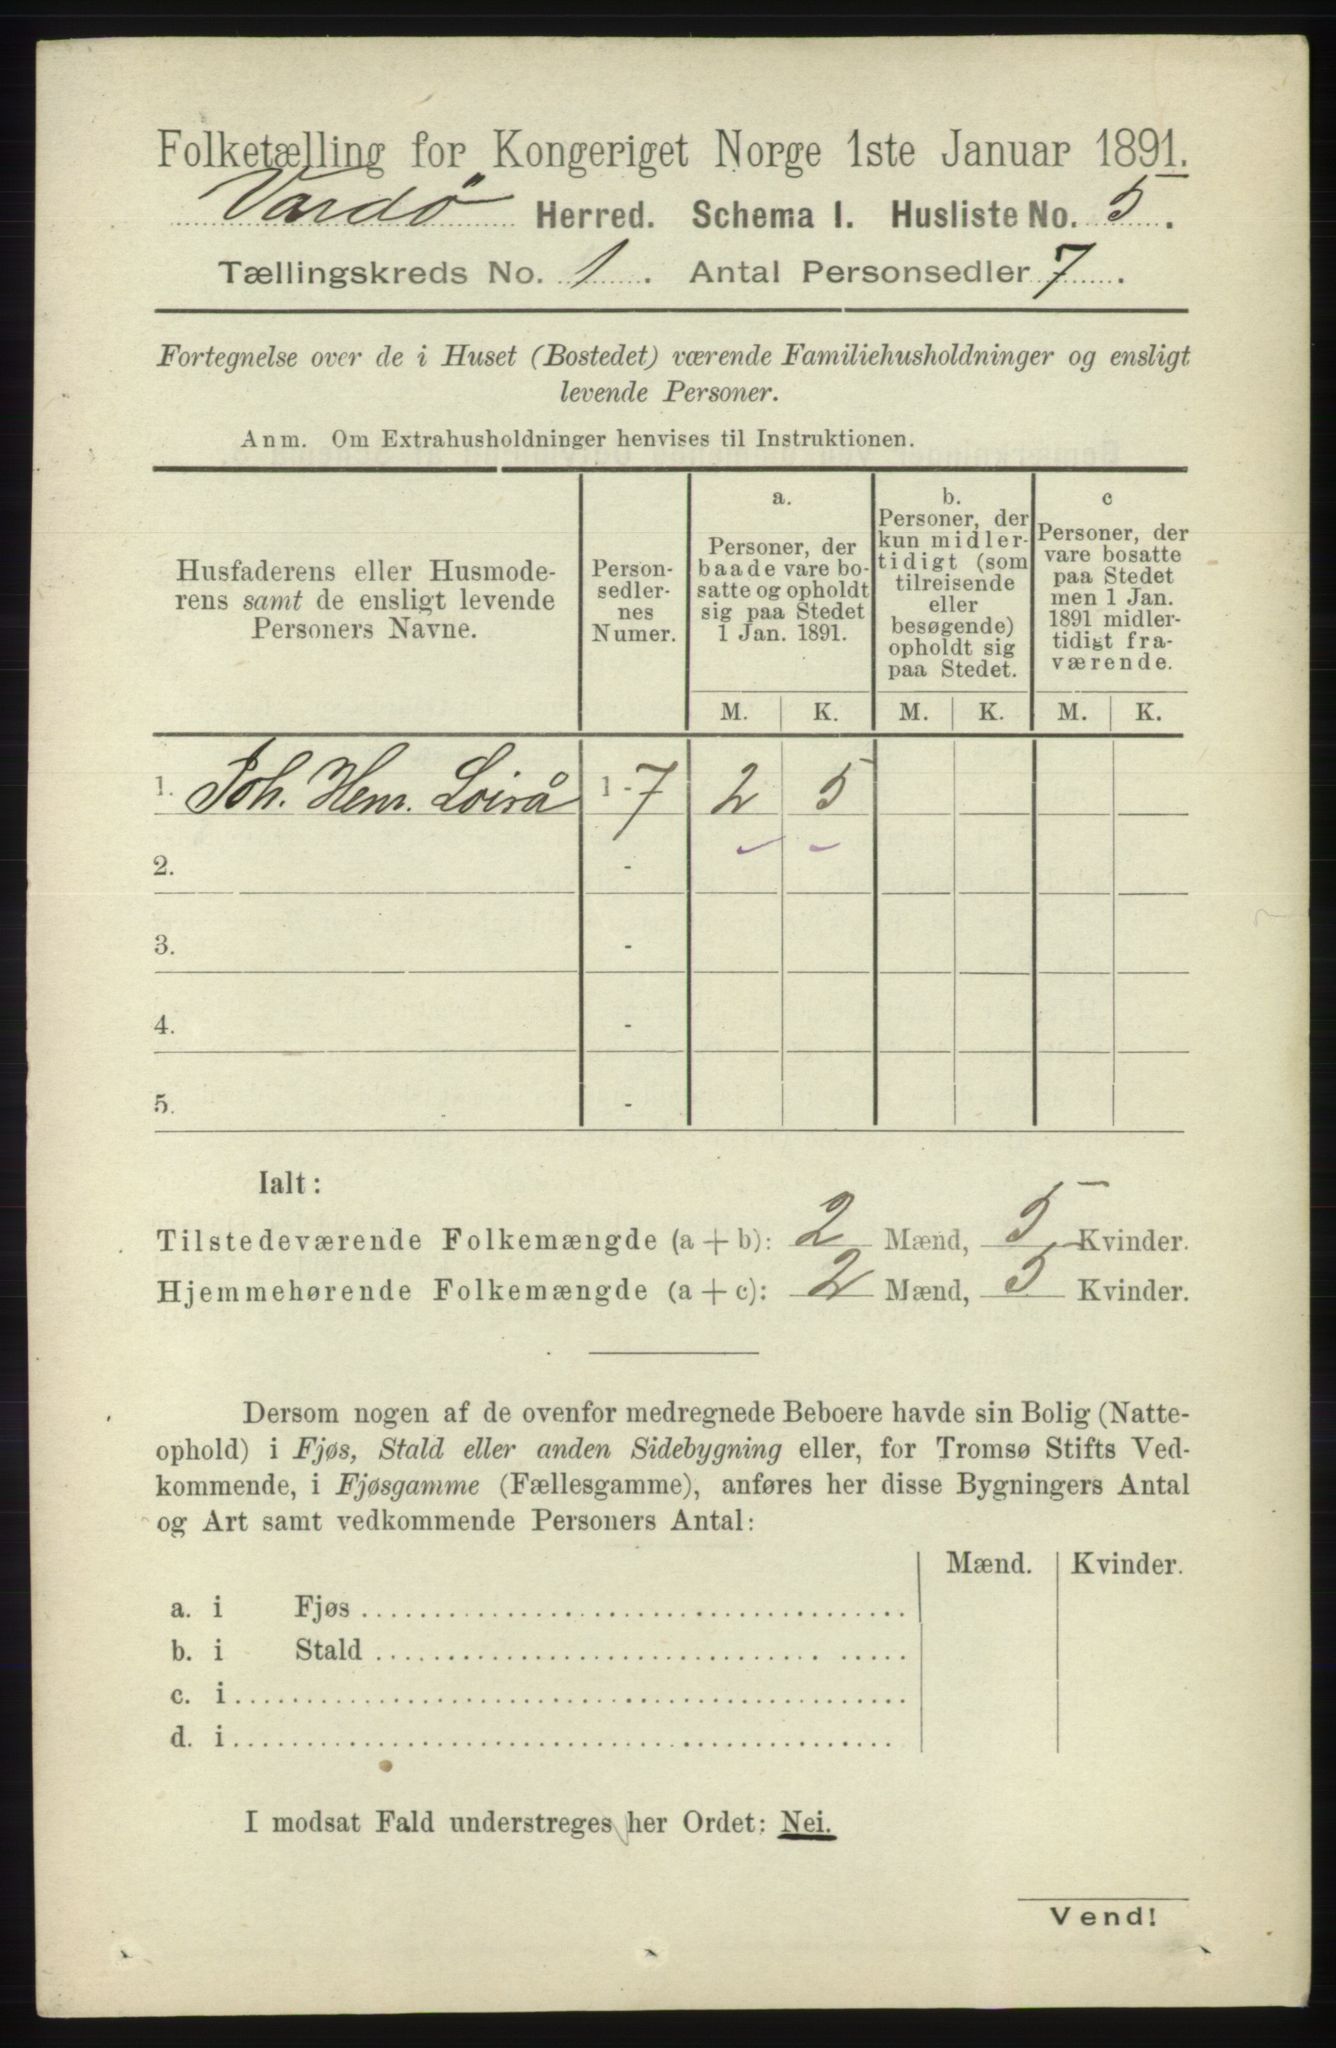 Folketælling for Kongeriget Norge 1ste Januar 1891.
Vardö Herred. Schema I. Husliste No. 5.
Tællingskreds No. 1. Antal Personsedler 7.
Fortegnelse over de i Huset (Bostedet) værende Familiehusholdninger og ensligt
levende Personer.
Anm. Om Extrahusholdninger henvises til Instruktionen.
Husfaderens eller Husmode-
rens samt de ensligt levende
Personers Navne.
Person-
sedler-
nes
Numer.
a.
Personer, der
baade vare bo-
satte og opholdt
sig paa Stedet
1 Jan. 1891.
b.
Personer, der
kun midler-
tidigt (som
tilreisende
eller
besøgende)
opholdt sig
paa Stedet.
c
Personer, der
vare bosatte
paa Stedet
men 1 Jan.
1891 midler-
tidigt fra-
værende.
M. K. M. K. M. K.
1. Joh. Henr. Loirå 1 - 7 2 5
2. -
3. -
4. -
5. -
Ialt:
Tilstedeværende Folkemængde (a + b): 2 Mænd, 5 Kvinder.
Hjemmehørende Folkemængde (a + c): 2 Mænd, 5 Kvinder.
Dersom nogen af de ovenfor medregnede Beboere havde sin Bolig (Natte-
ophold) i Fjøs, Stald eller anden Sidebygning eller, for Tromsø Stifts Ved-
kommende, i Fjøsgamme (Fællesgamme), anføres her disse Bygningers Antal
og Art samt vedkommende Personers Antal:
Mænd. Kvinder.
a. i Fjøs
b. i Stald
c. i
d. i
I modsat Fald understreges her Ordet: Nei.
Vend!